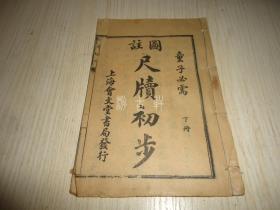 童子必需
下冊
圖
註
尺牘初步
上海會文堂書局發行